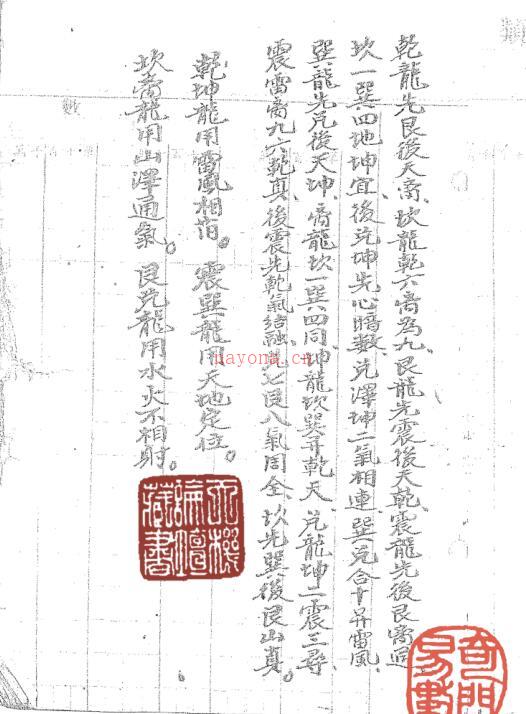 類
數
乾龍先艮後天离、坎龍乾六离為九、艮龍先震後天乾、震龍先後艮离週、
坎一巽四地坤宜、後兌坤先心暗數、兌澤坤二氣相連、巽兌合十昇雷風、
巽龍先兌後天坤、离龍坎一巽四同、坤龍坎巽昇乾天、兌龍坤二震三尋、
震雷离九六乾真、後震先乾氣結融、七艮八氣周全、坎先巽後艮山真。
乾坤龍用雷風相薄。震巽龍用天地定位。
坎离龍用山澤通氣。艮兌龍用水火不相射。
nayona.cn
天機
論壇
藏書
奇門
易